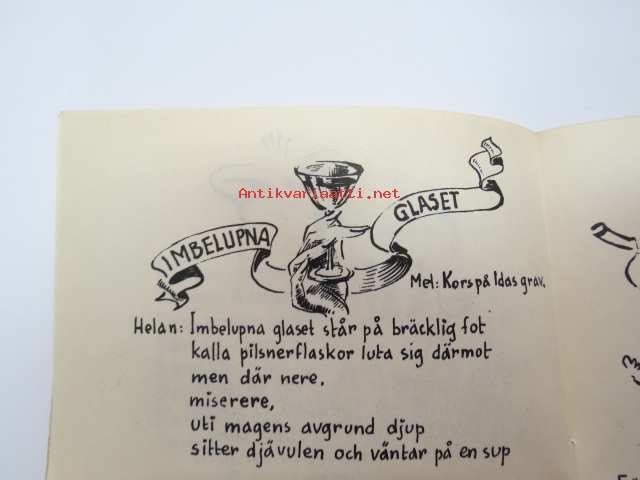 Antikvariaatti.net
IMBELUPNA GLASET
Mel: Kors på Idas grav.
Helan: Imbelupna glaset står på bräcklig fot
kalla pilsnerflaskor luta sig därmot
men där nere,
miserere,
uti magens avgrund djup
sitter djävulen och väntar på en sup